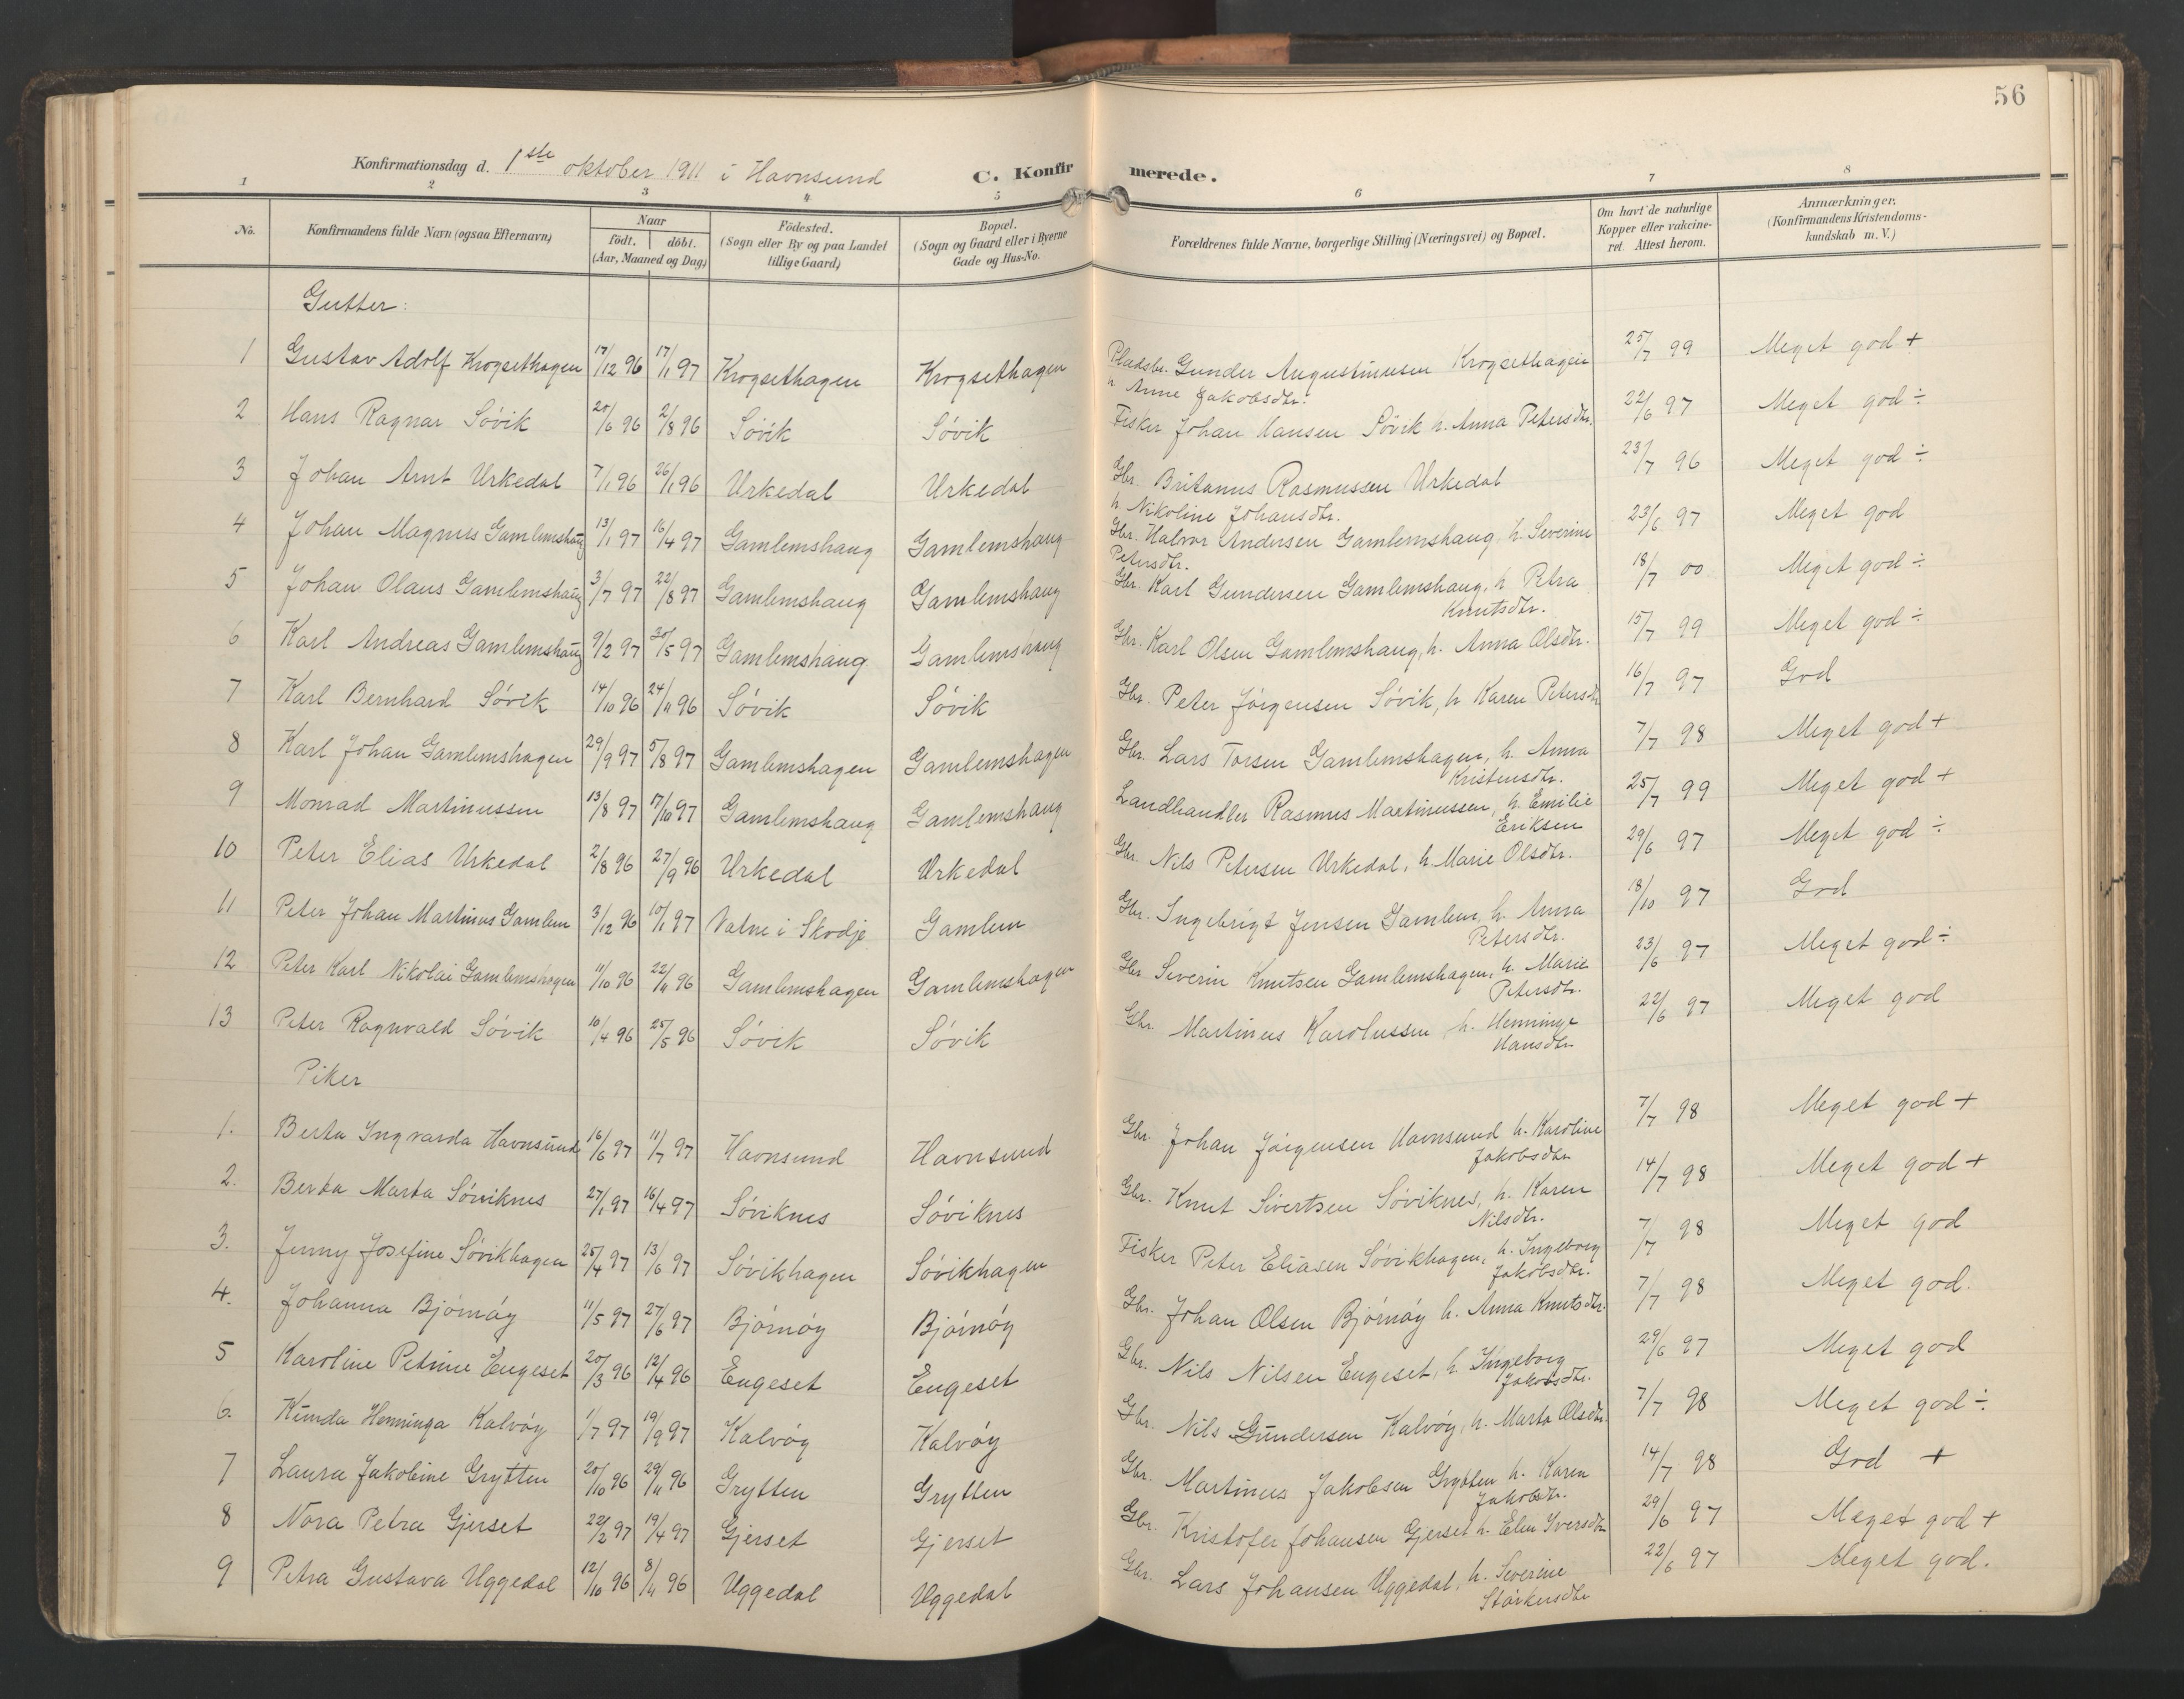 56
Konfirmationsdag d. 1ste oktober 1911 i Havnsund C. Konfirmerede.
1 2 3 4 5 6 7 8
No. Konfirmandens fulde Navn (ogsaa Efternavn) Naar födt. döbt. (Aar, Maaned og Dag) Födested. (Sogn eller By og paa Landet tillige Gaard) Bopæl. (Sogn og Gaard eller i Byerne Gade og Hus-No. Forældrenes fulde Navne, borgerlige Stilling (Næringsvei) og Bopæl. Om havt de naturlige Kopper eller vakcineret. Attest herom. Anmærkninger. (Konfirmandens Kristendomskundskab m. V.)
Gutter:
1 Gustav Adolf Krogsethagen 17/12 96 17/1 97 Krogsethagen Krogsethagen Pladsbr. Gunder Augustinusen Krogsethagen 25/7 99 Meget god +
h. Anne Jakobsdtr.
2 Hans Ragnar Søvik 20/6 96 2/8 96 Søvik Søvik Fisker Johan Hansen Søvik h. Anna Petersdtr. 22/6 97 Meget god ÷
3 Johan Arnt Urkedal 7/1 96 26/1 96 Urkedal Urkedal Gbr. Britanus Rasmussen Urkedal 23/7 96 Meget god ÷
h. Nikoline Johansdtr.
4 Johan Magnus Gamlemshaug 13/1 97 16/4 97 Gamlemshaug Gamlemshaug Gbr. Halvor Andersen Gamlemshaug, h. Severine 23/6 97 Meget god
Petersdtr.
5 Johan Olaus Gamlemshaug 3/7 97 22/8 97 Gamlemshaug Gamlemshaug Gbr. Karl Gundersen Gamlemshaug, h. Petra 18/7 00 Meget god ÷
Knutsdtr.
6 Karl Andreas Gamlemshaug 9/2 97 30/5 97 Gamlemshaug Gamlemshaug Gbr. Karl Olsen Gamlemshaug, h. Anna Olsdtr. 15/7 99 Meget god ÷
7 Karl Bernhard Søvik 14/10 96 24/11 96 Søvik Søvik Gbr. Peter Jørgensen Søvik, h Karen Petersdtr 16/7 97 God
8 Karl Johan Gamlemshagen 29/9 97 5/8 97 Gamlemshagen Gamlemshagen Gbr. Lars Torsen Gamlemshagen, h. Anna 7/7 98 Meget god +
Kristensdtr.
9 Monrad Martinussen 13/8 97 17/10 97 Gamlemshaug Gamlemshaug Landhandler Rasmus Martinussen, h. Emilie 25/7 99 Meget god +
Eriksen
10 Peter Elias Urkedal 2/8 96 27/9 96 Urkedal Urkedal Gbr. Nils Petersen Urkedal, h. Marie Olsdtr. 29/6 97 Meget god ÷
11 Peter Johan Martinus Gamlem 3/12 96 10/1 97 Valne i Skodje Gamlem Gbr. Ingebrigt Jensen Gamlem, h. Anna 18/10 97 God
Petersdtr.
12 Peter Karl Nikolai Gamlemshagen 11/10 96 22/11 96 Gamlemshagen Gamlemshagen Gbr Severin Knutsen Gamlemshagen, h. Marie 23/6 97 Meget god ÷
Petersdtr.
13 Peter Ragnvald Søvik 10/4 96 25/5 96 Søvik Søvik Gbr. Martinus Karolussen h. Henninge 22/6 97 Meget god
Hansdtr
Piker
1. Berta Ingvarda Havnsund 16/6 97 11/7 97 Havnsund Havnsund Gbr. Johan Jørgensen Havnsund h. Karoline 7/7 98 Meget god +
Jakobsdtr
2. Berta Marta Søviknes 27/1 97 16/4 97 Søviknes Søviknes Gbr. Knut Sivertsen Søviknes, h. Karen 14/7 98 Meget god +
Nilsdtr.
3. Jenny Josefine Søvikhagen 25/4 97 13/6 97 Søvikhagen Søvikhagen Fisker Peter Eliasen Søvikhagen, h. Ingeborg 7/7 98 Meget god
Jakobsdtr.
4. Johanna Bjørnøy 11/5 97 27/6 97 Bjørnøy Bjørnøy Gbr. Johan Olsen Bjørnøy h. Anna Knutsdtr. 7/7 98 Meget god.
5 Karoline Petrine Engeset 20/3 96 12/4 96 Engeset Engeset Gbr. Nils Nilsen Engeset, h. Ingeborg 29/6 97 Meget god
Jakobsdtr.
6. Kunda Henninga Kalvøy 1/7 97 19/9 97 Kalvøy Kalvøy Gbr. Nils Gundersen Kalvøy, h. Marta Olsdtr. 7/7 98 Meget god ÷
7 Laura Jakobine Grytten 20/10 96 29/11 96 Grytten Grytten Gbr. Martinus Jakobsen Grytten h. Karen 14/7 98 God +
Jakobsdtr.
8 Nora Petra Gjerset 22/2 97 19/4 97 Gjerset Gjerset Gbr. Kristofer Johansen Gjerset h. Elen Iversdtr 29/6 97 Meget god +
9 Petra Gustava Uggedal 12/10 96 8/11 96 Uggedal Uggedal Gbr. Lars Johansen Uggedal, h. Severine 22/6 97 Meget god.
Størkersdtr